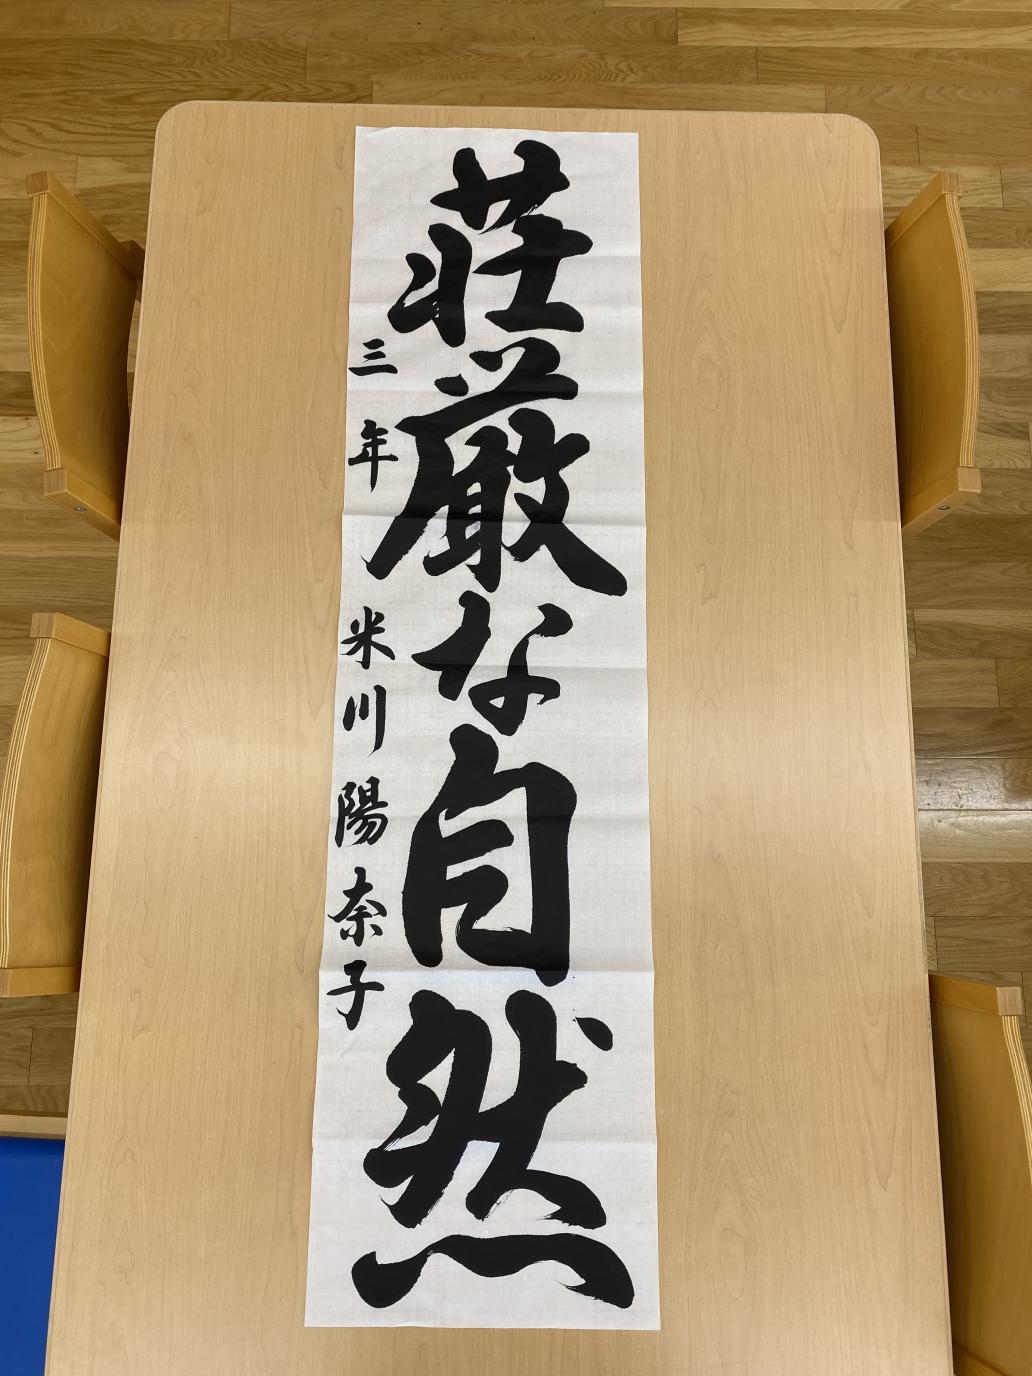 荘厳な自然
三年 米川陽奈子